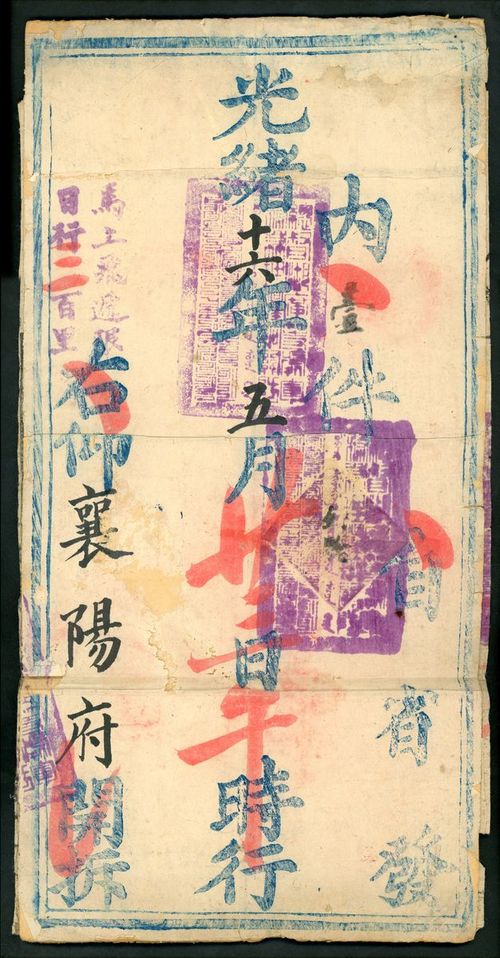 自省發
內壹件
光緒十六年五月廿三日午時行
右仰襄陽府開拆
馬上飛遞限
日行三百里